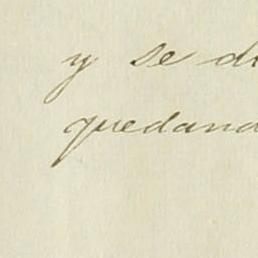 y se di
quedand